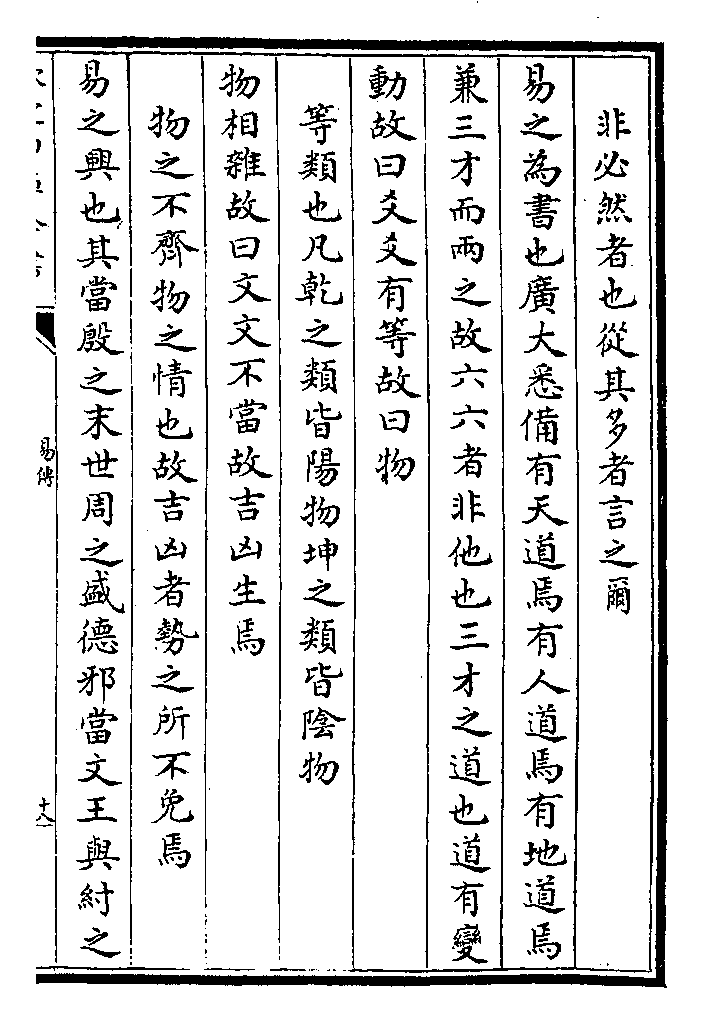 非必然者也從其多者言之爾
易之為書也廣大悉備有天道焉有人道焉有地道焉
兼三才而兩之故六六者非他也三才之道也道有變
動故曰爻爻有等故曰物
等類也凡乾之類皆陽物坤之類皆陰物
物相雜故曰文文不當故吉凶生焉
物之不齊物之情也故吉凶者勢之所不免焉
易之興也其當殷之末世周之盛德邪當文王與紂之
易傳
十八